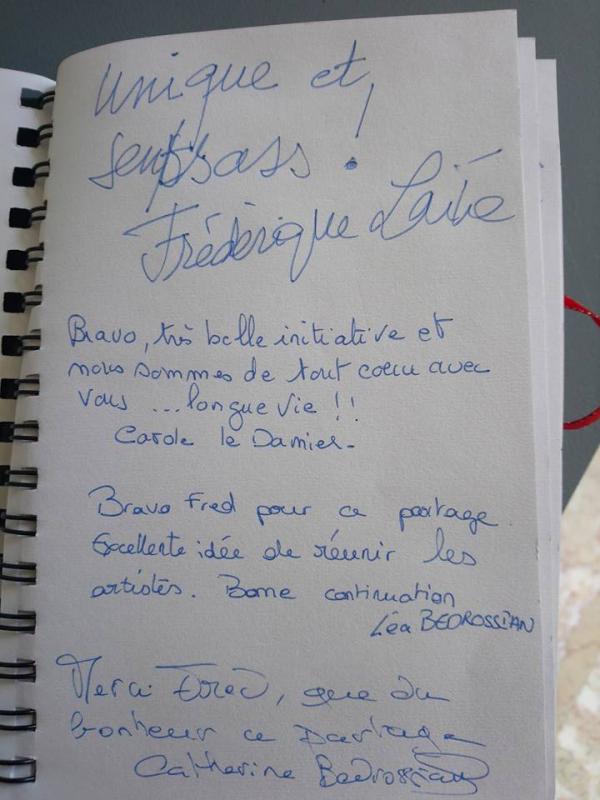 Unique et
sensass !
Frédérique
Bravo, très belle initiative et
nous sommes de tout coeur avec
vous ... longue vie !!
Carole le Damier-
Bravo Fred pour ce partage
Excellente idée de réunir les
artistes. Bonne continuation
Léa BEDROSSIAN
Merci Fred, que du
bonheur ce partage
Catherine Bedrossian